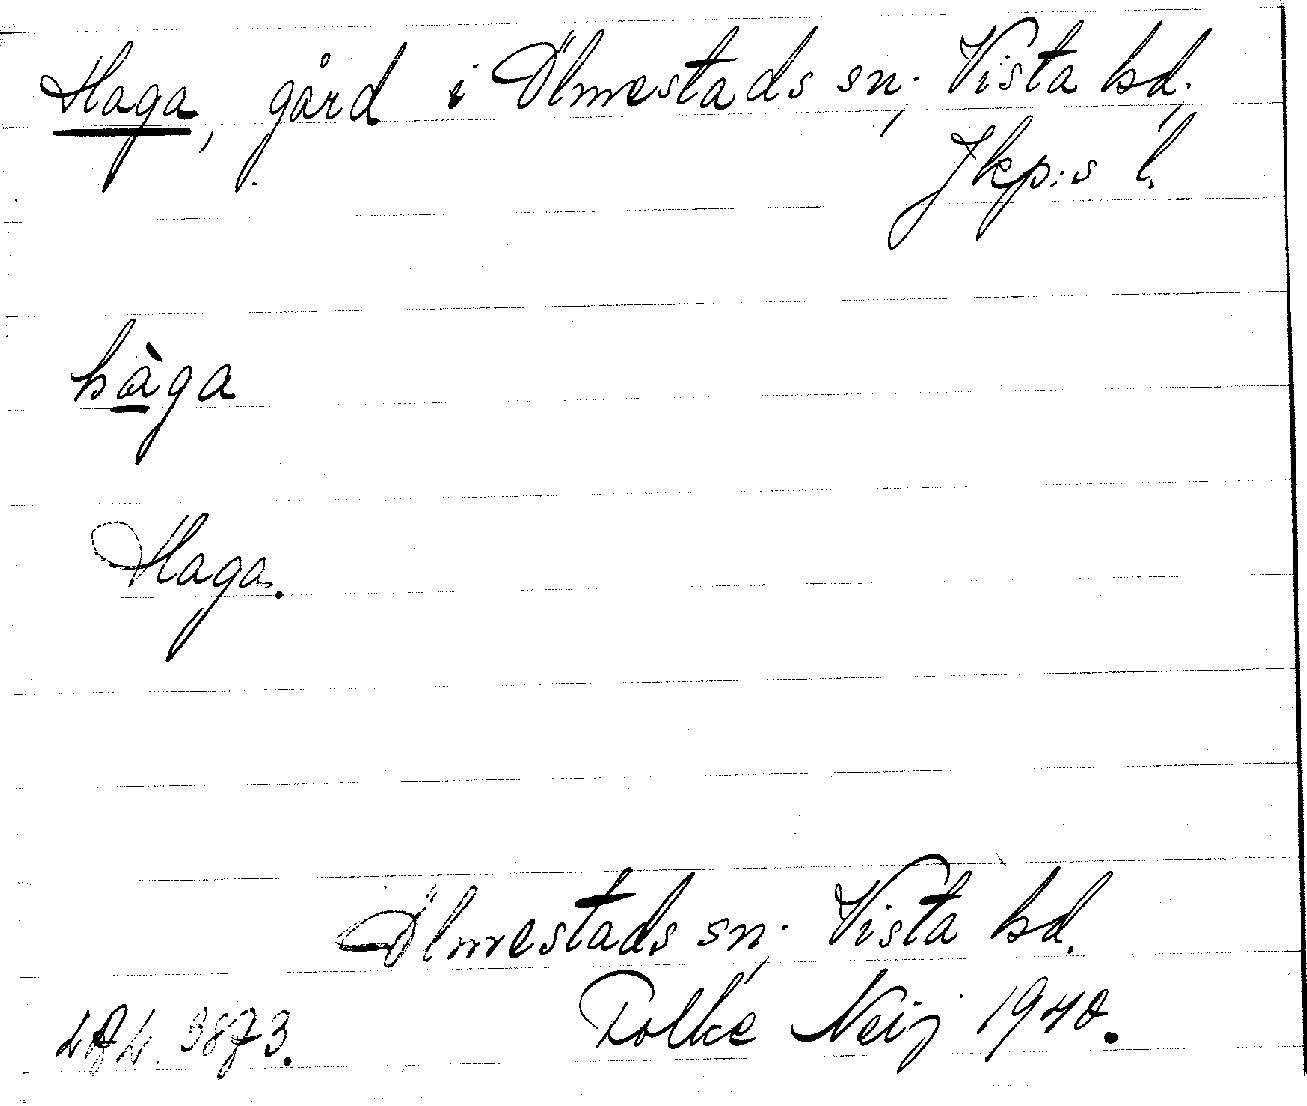 Haga, gård i Ölmestads sn; Vista hd,
Jkp:s l.
hàga
Haga.
Ölmestads sn; Vista hd.
Folke Neij 1940.
3873.